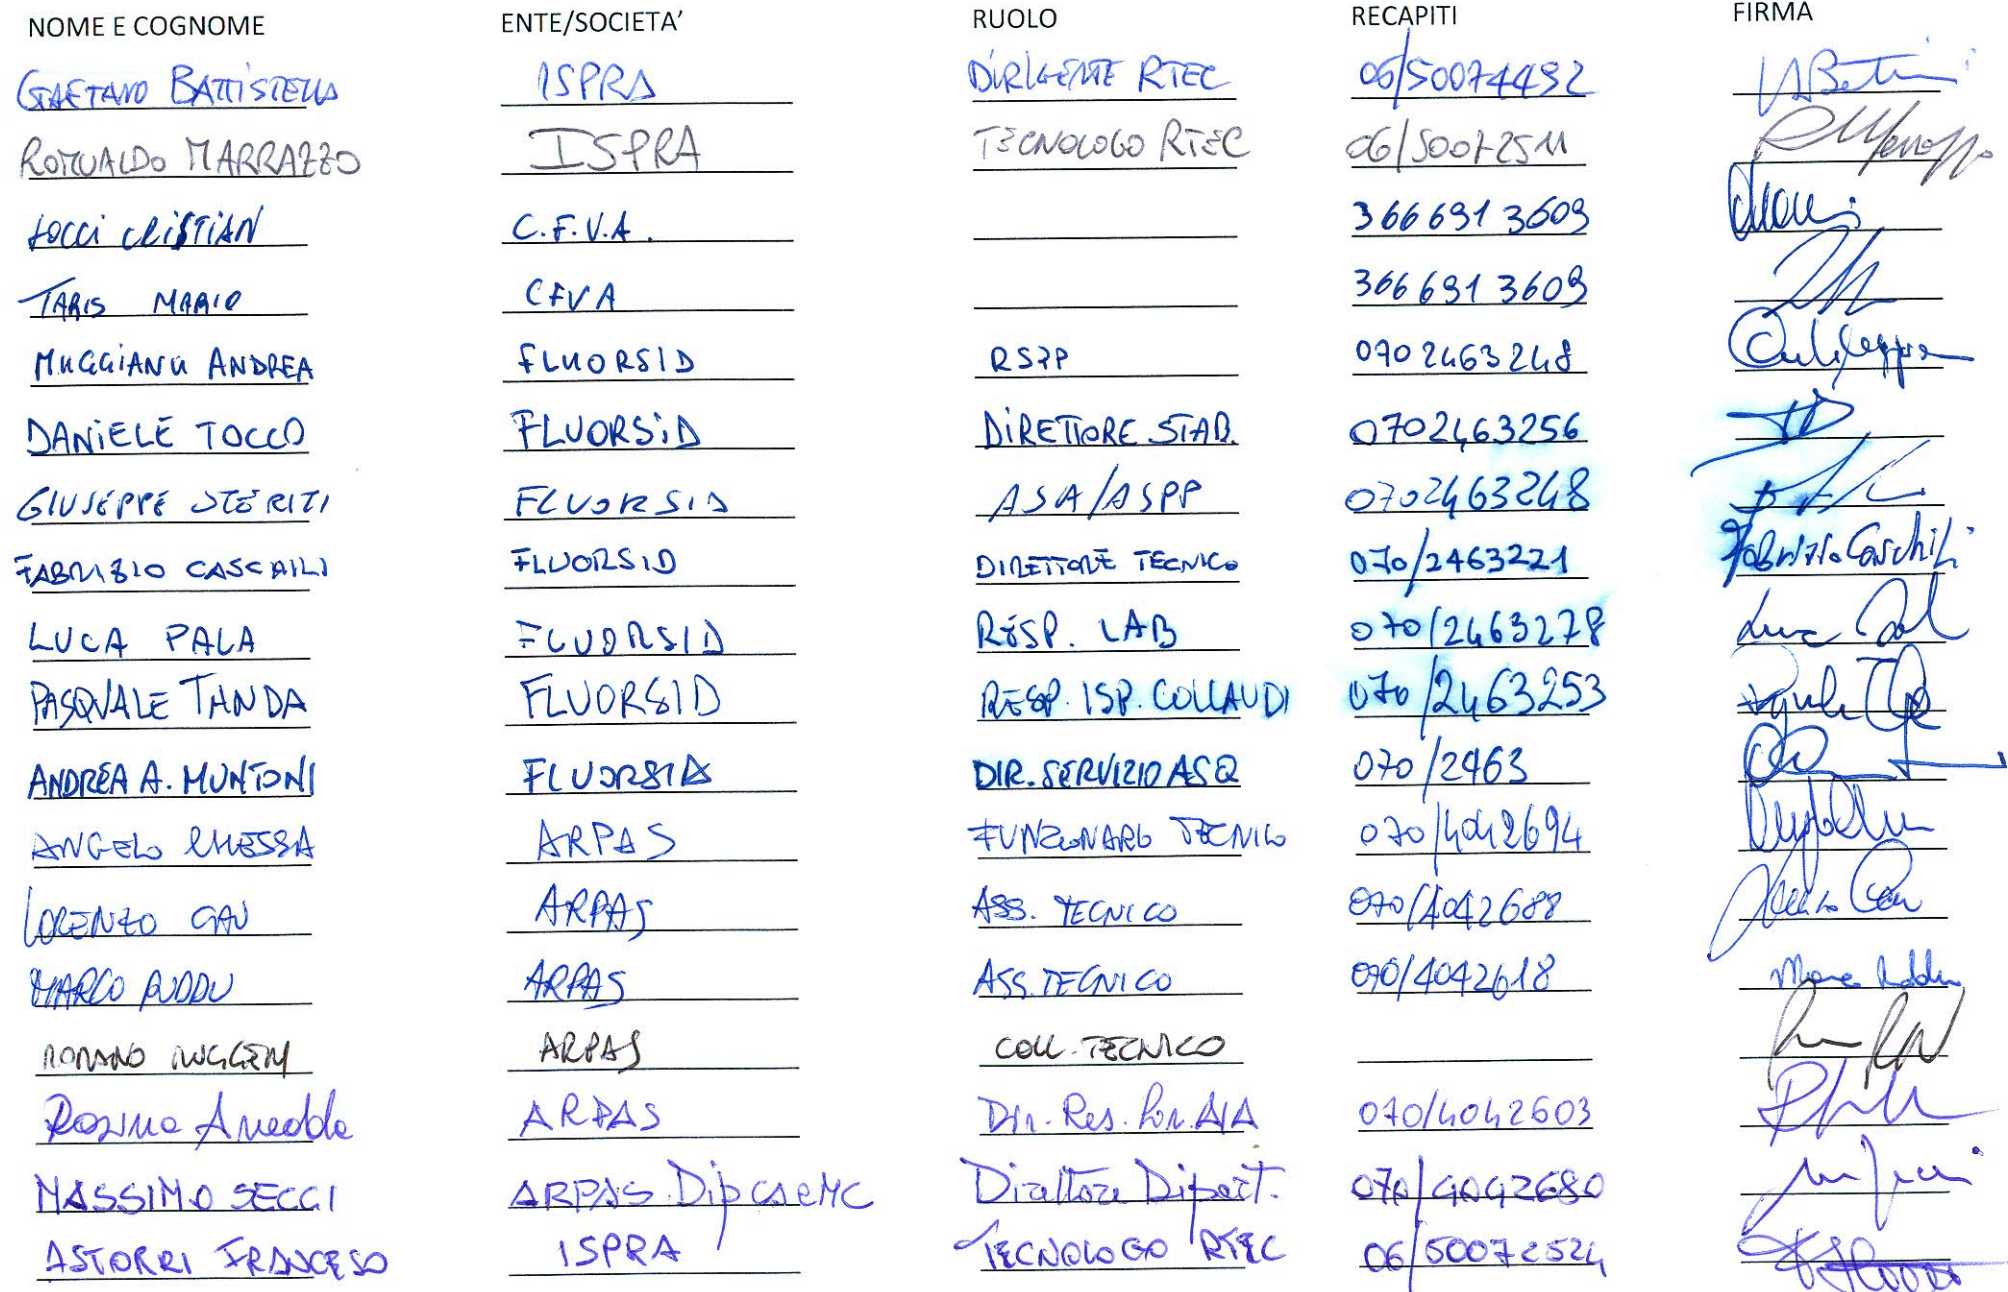 NOME E COGNOME ENTE/SOCIETA' RUOLO RECAPITI FIRMA
GAETANO BATTISTELLA ISPRA DIRIGENTE RTEC 06/50074492
ROMUALDO MARRAZZO ISPRA TECNOLOGO RTEC 06/50072511
LOCCI CRISTIAN C.F.V.A. 366 691 3609
TARIS MARIO CFVA 366 691 3609
MUGGIANU ANDREA FLUORSID RSPP 0702463248
DANIELE TOCCO FLUORSID DIRETTORE STAB. 0702463256
GIUSEPPE STERITI FLUORSID ASA/ASPP 0702463248
FABRIZIO CASCHILI FLUORSID DIRETTORE TECNICO 070/2463221 Fabrizio Caschili
LUCA PALA FLUORSID RESP. LAB 070/2463278 Luca
PASQUALE TANDA FLUORSID RESP. ISP. COLLAUDI 070/2463253
ANDREA A. MUNTONI FLUORSID DIR. SERVIZIO ASQ 070/2463
ANGELO CHESSA ARPAS FUNZIONARIO TECNICO 070/4042694
LORENZO CAU ARPAS ASS. TECNICO 070/4042688
MARCO PUDDU ARPAS ASS. TECNICO 070/4042618 Marco Puddu
ROMANO RUGGERI ARPAS COLL. TECNICO
Rosina Anedda ARPAS Dir. Res. AIA 070/4042603
MASSIMO SECCI ARPAS Dip CA e MC Direttore Dipart. 070/4042680
ASTORRI FRANCESO ISPRA TECNOLOGO RTEC 06/50072524